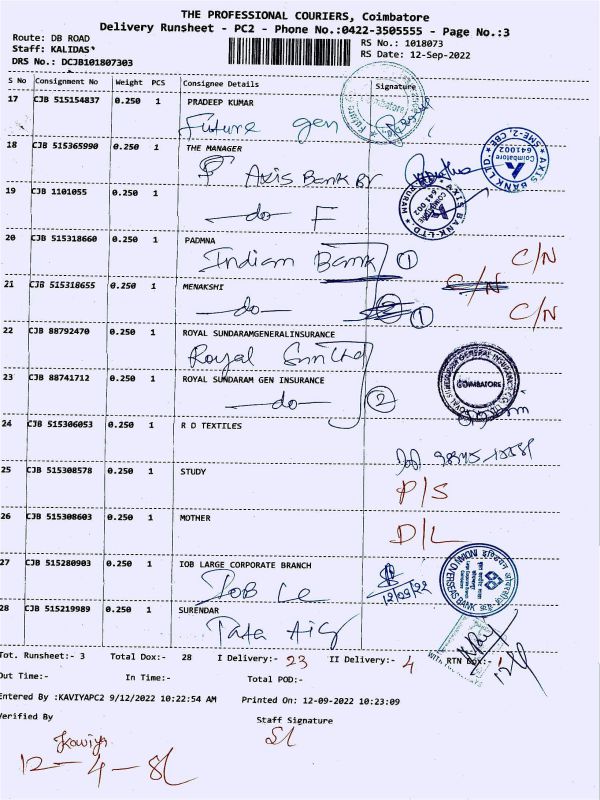 THE PROFESSIONAL COURIERS, Coimbatore
Delivery Runsheet - PC2 - Phone No.:0422-3505555 - Page No.:3
Route: DB ROAD
RS No.: 1018073
Staff: KALIDAS*
RS Date: 12-Sep-2022
DRS No.: DCJB101807303
S No Consignment No Weight PCS Consignee Details Signature
17 CJB 515154837 0.250 1 PRADEEP KUMAR
Future gen
18 CJB 515365990 0.250 1 THE MANAGER
Axis Bank Br
AXIS BANK LTD SME-2, CBE Coimbatore 641002
19 CJB 1101055 0.250 1
do F
AXIS BANK LTD COIMBATORE 641 002
20 CJB 515318660 0.250 1 PADMNA
Indian Bank 1 C/N
21 CJB 515318655 0.250 1 MENAKSHI
C/N
do 1 C/N
22 CJB 88792470 0.250 1 ROYAL SUNDARAMGENERALINSURANCE
Royal
23 CJB 88741712 0.250 1 ROYAL SUNDARAM GEN INSURANCE
COIMBATORE
do 2
24 CJB 515306053 0.250 1 R D TEXTILES
25 CJB 515308578 0.250 1 STUDY
P/S
26 CJB 515308603 0.250 1 MOTHER
D/L
27 CJB 515280903 0.250 1 IOB LARGE CORPORATE BRANCH
IOB Lc
12/09/22
INDIAN OVERSEAS BANK
28 CJB 515219989 0.250 1 SURENDAR
Tata Aig
Tot. Runsheet:- 3 Total Dox:- 28 I Delivery:- 23 II Delivery:- 4 RTN Dox:- 1
Out Time:- In Time:- Total POD:-
Entered By :KAVIYAPC2 9/12/2022 10:22:54 AM Printed On: 12-09-2022 10:23:09
Verified By Staff Signature
Kaviya